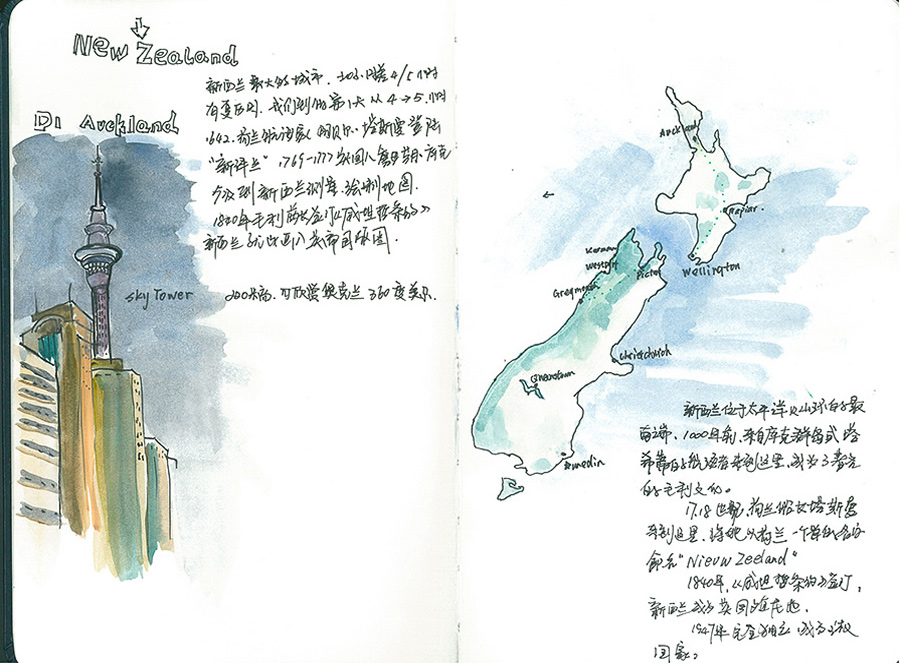 New Zealand
D1 Auckland
新西兰最大的城市.时差4/5小时
有夏令时.我们到的第1天从4→5小时
1642.荷兰航海家阿贝尔.塔斯曼登陆
"新泽兰" 1769-1777 英国人詹姆斯·库克
5次到新西兰测量,绘制地图.
1840年毛利酋长签订《威坦哲条约》
新西兰 划入英帝国版图.
Sky Tower 200米高.可欣赏奥克兰360度美景.
Auckland
Napier.
Wellington
Karamea
Westport
Picton
Greymouth
Christchurch
Queenstown
Dunedin
新西兰位于太平洋
南端.1000年前,来自库克群岛或塔
希蒂的 来到这里,成为了最早
的毛利文化。
17.18世纪,荷兰 塔斯曼
来到这里.将她以荷兰一个 名字
命名"Nieuw Zeeland"
1840年,《威坦哲条约》签订,
新西兰成为英国殖民地.
1947年完全独立,成为主权
国家。